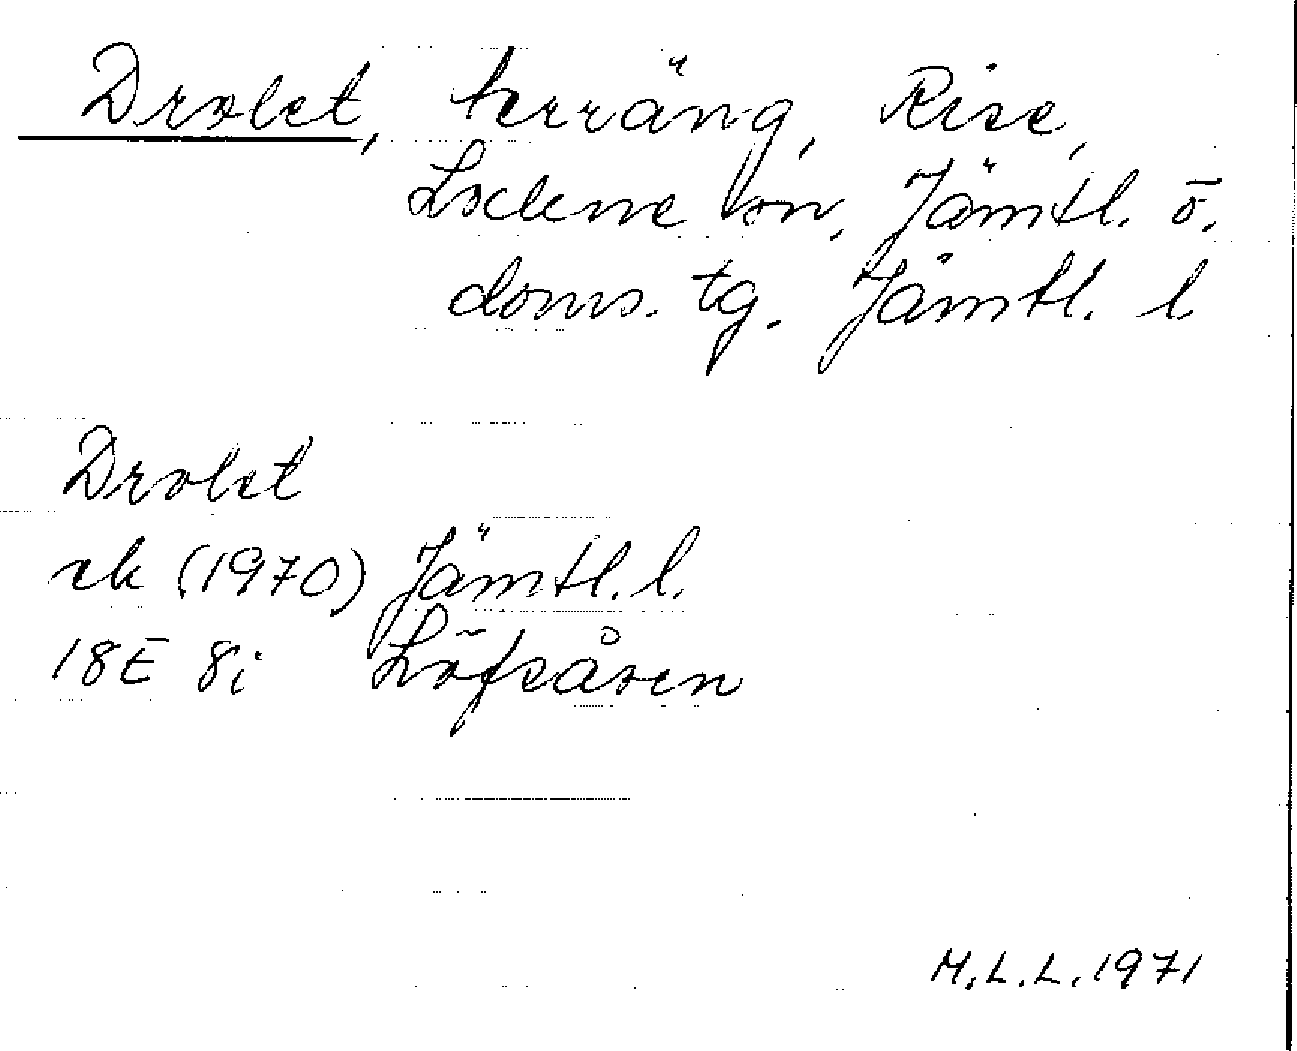 Drolet, terräng, Rise,
Lockne sn, Jämtl. ö.
doms. tg. Jämtl. l.
Drolet
ek (1970) Jämtl. l.
18E 8i Löfsåsen
M.L.L. 1971